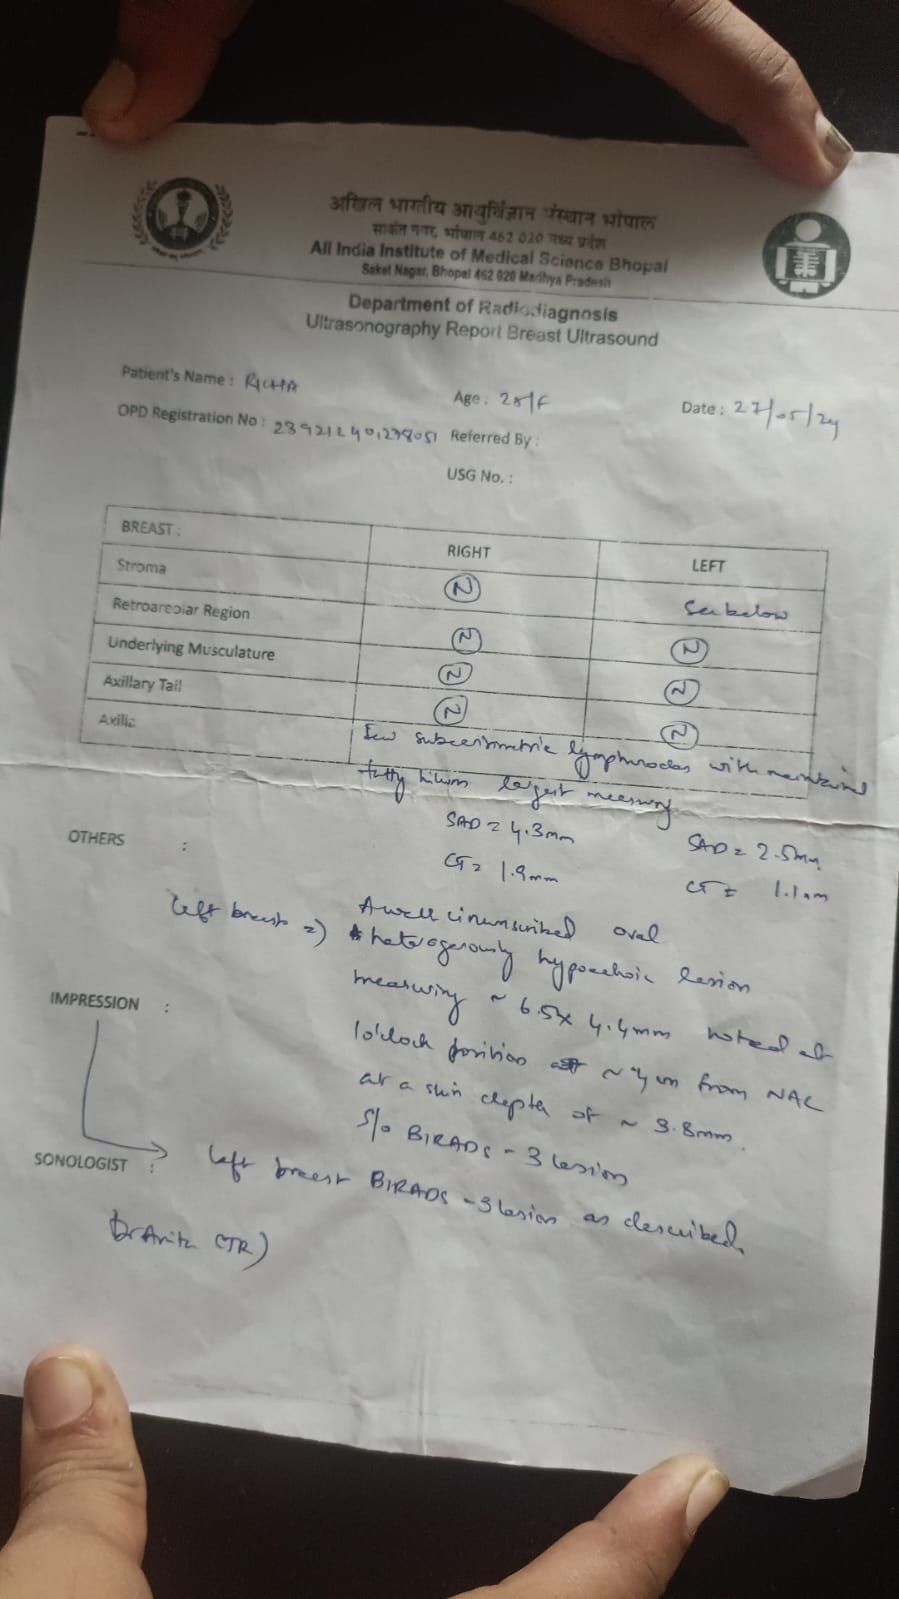 अखिल भारतीय आयुर्विज्ञान संस्थान भोपाल
साकेत नगर, भोपाल 462 020 मध्य प्रदेश
All India Institute of Medical Science Bhopal
Saket Nagar, Bhopal 462 020 Madhya Pradesh
Department of Radiodiagnosis
Ultrasonography Report Breast Ultrasound
Patient's Name : RICHA Age : 28/F Date : 27/05/24
OPD Registration No : Referred By :
USG No. :
BREAST : RIGHT LEFT
Stroma N See below
Retroareolar Region N N
Underlying Musculature N N
Axillary Tail N N
Axilla Few subcentimetric lymphnodes with maintained
fatty hilum largest measuring
SAD = 4.3mm SAD = 2.5mm
CT = 1.9mm CT = 1.1mm
OTHERS :
left breast => A well circumscribed oval
heterogenously hypoechoic lesion
measuring ~ 6.5 x 4.4mm noted at
IMPRESSION :
1o'clock position ~ from NAC
at a skin depth of ~ 3.8mm.
S/o BIRADS - 3 lesion
SONOLOGIST :
left breast BIRADS - 3 lesion as described.